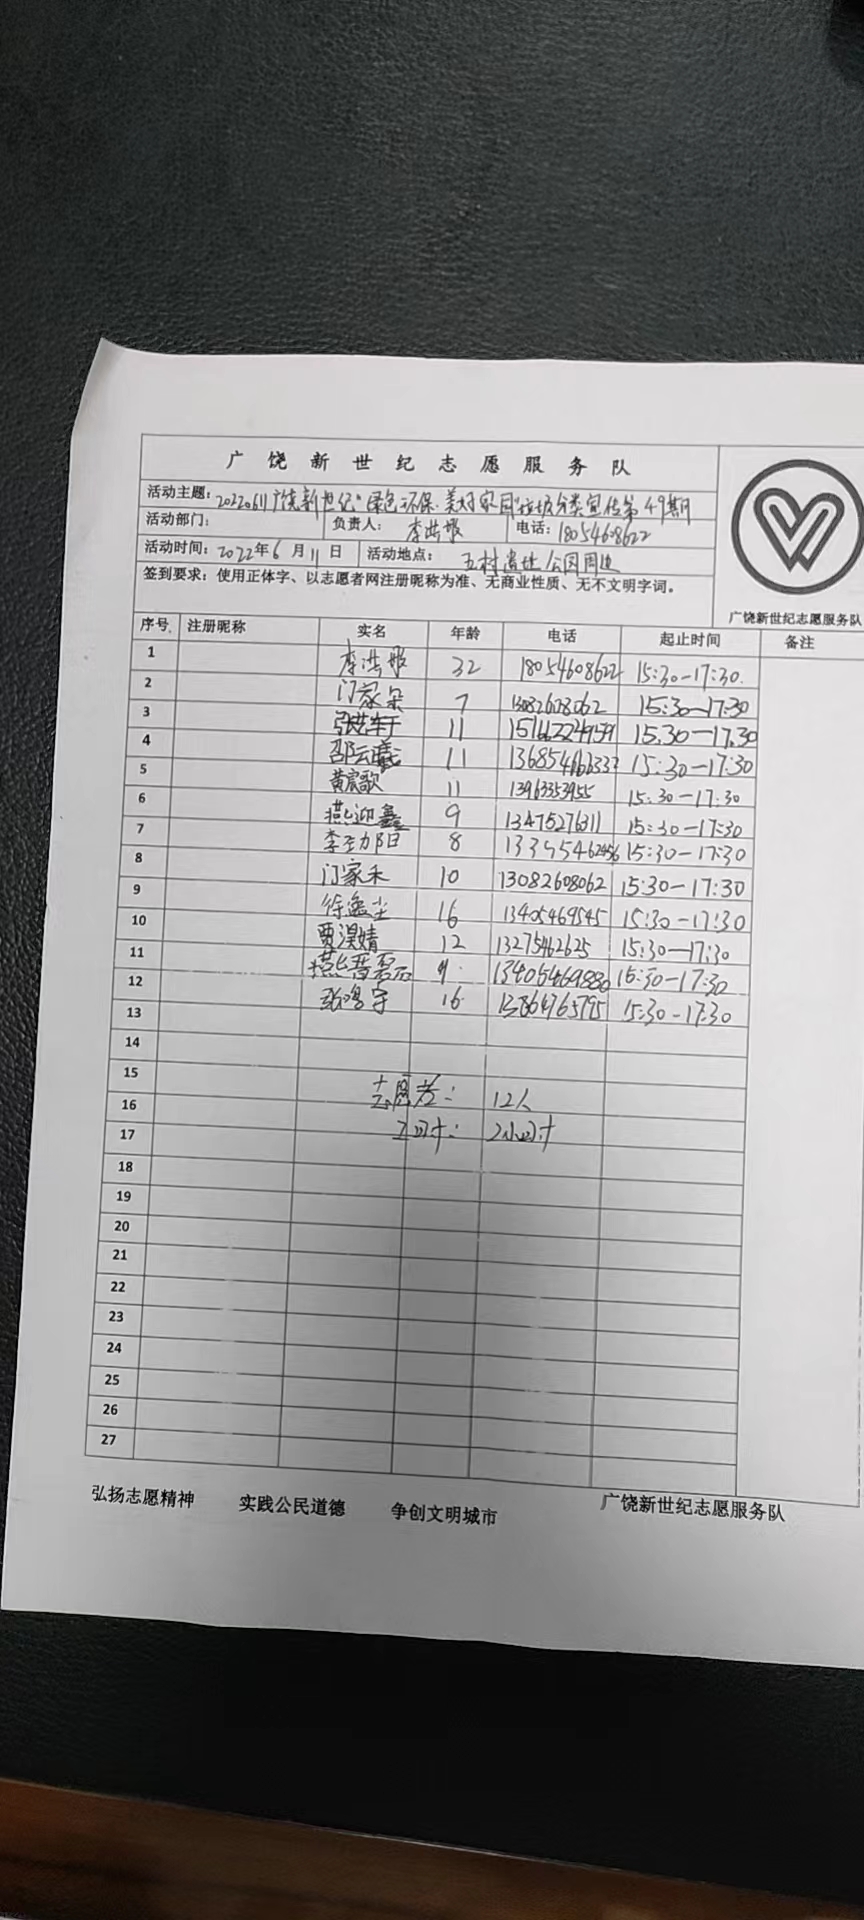 广饶新世纪志愿服务队
活动主题：20220611广饶新世纪"绿色环保·美好家园"垃圾分类宣传第49期
活动部门： 负责人：李 电话：18054608622
活动时间：2022年6月11日 活动地点：五村遗址公园周边
签到要求：使用正体字、以志愿者网注册昵称为准、无商业性质、无不文明字词。
广饶新世纪志愿服务队
序号 注册昵称 实名 年龄 电话 起止时间 备注
1 李 32 18054608622 15:30-17:30.
2 门家朵 7 13082608062 15:30-17:30
3 11 15:30-17:30
4 邵云曦 11 15:30-17:30
5 黄宸歌 11 13963353955 15:30-17:30
6 燕迎鑫 9 13475276311 15:30-17:30
7 李 阳 8 15:30-17:30
8 门家禾 10 13082608062 15:30-17:30
9 徐 16 13405469545 15:30-17:30
10 贾淏婧 12 13275462625 15:30-17:30
11 燕 磊 15:30-17:30
12 张 宇 16 15:30-17:30
13
14
15 志愿者： 12人
16
17 工时： 2小时
18
19
20
21
22
23
24
25
26
27
弘扬志愿精神 实践公民道德 争创文明城市 广饶新世纪志愿服务队